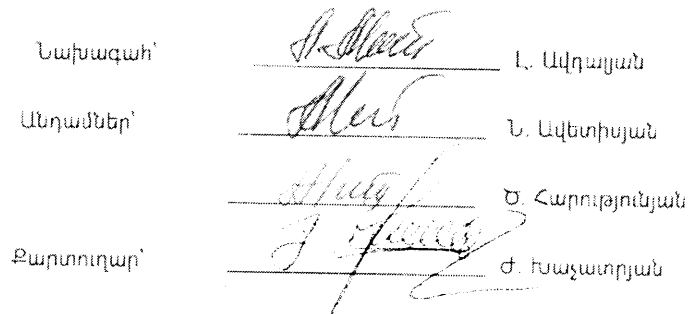 Նախագահ՝ Լ. Ավդալյան
Անդամներ՝ Ն. Ավետիսյան
Ծ. Հարությունյան
Քարտուղար՝ Ժ. Խաչատրյան